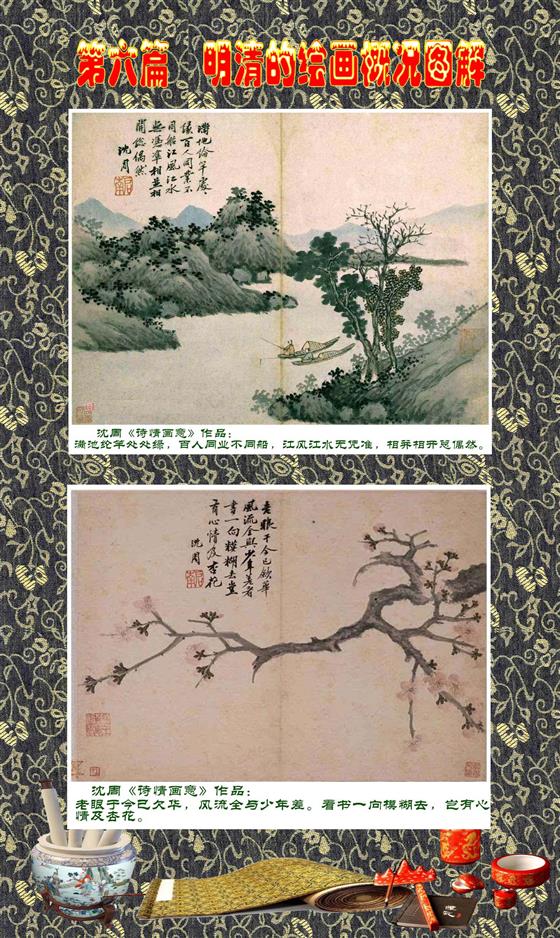 第六篇 明清的绘画概况图解
滿地綸竿處〻
緣百人同業不
同船江風江水
無憑準相並相
開總偶然
沈周
沈周《诗情画意》作品：
满池纶竿处处缘，百人同业不同船，江风江水无凭准，相莽相开总偶然。
老眼于今已欠華
風流全與少年差看
書一向糢糊去豈
有心情及杏花
沈周
沈周《诗情画意》作品：
老眼于今已欠华，风流全与少年差。看书一向模糊去，岂有心
情及杏花。